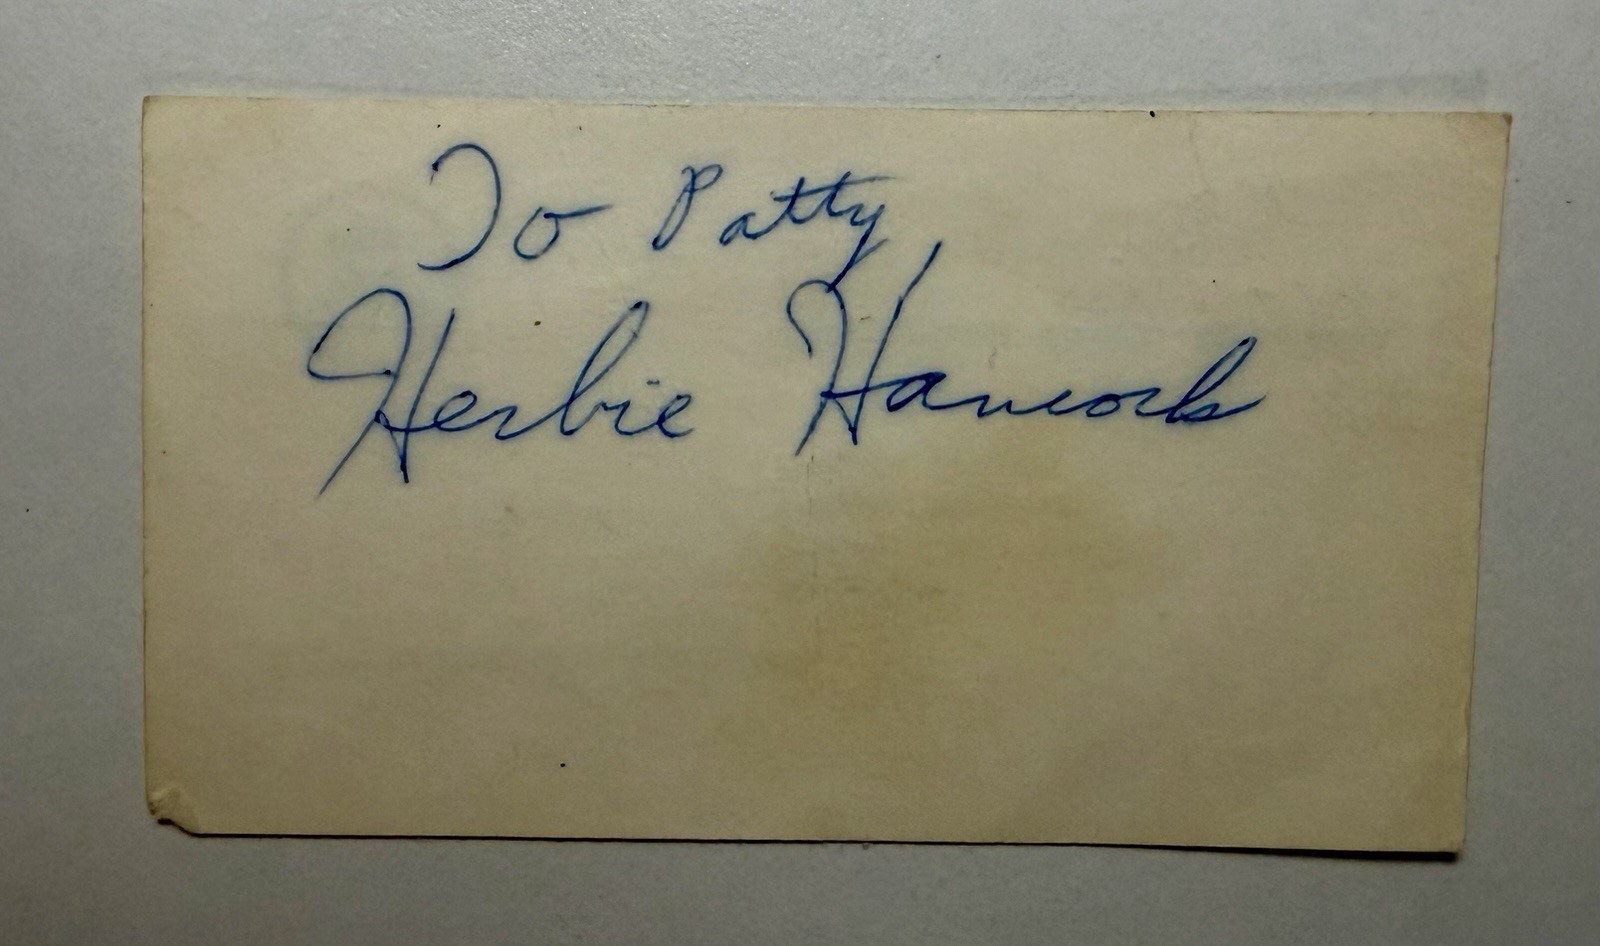 To Patty
Herbie Hancock